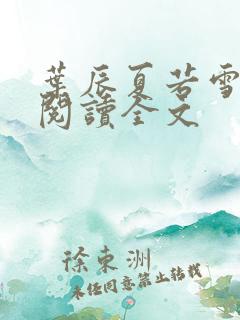 葉辰夏若雪
閱讀全文
徐東洲
未经同意禁止转载